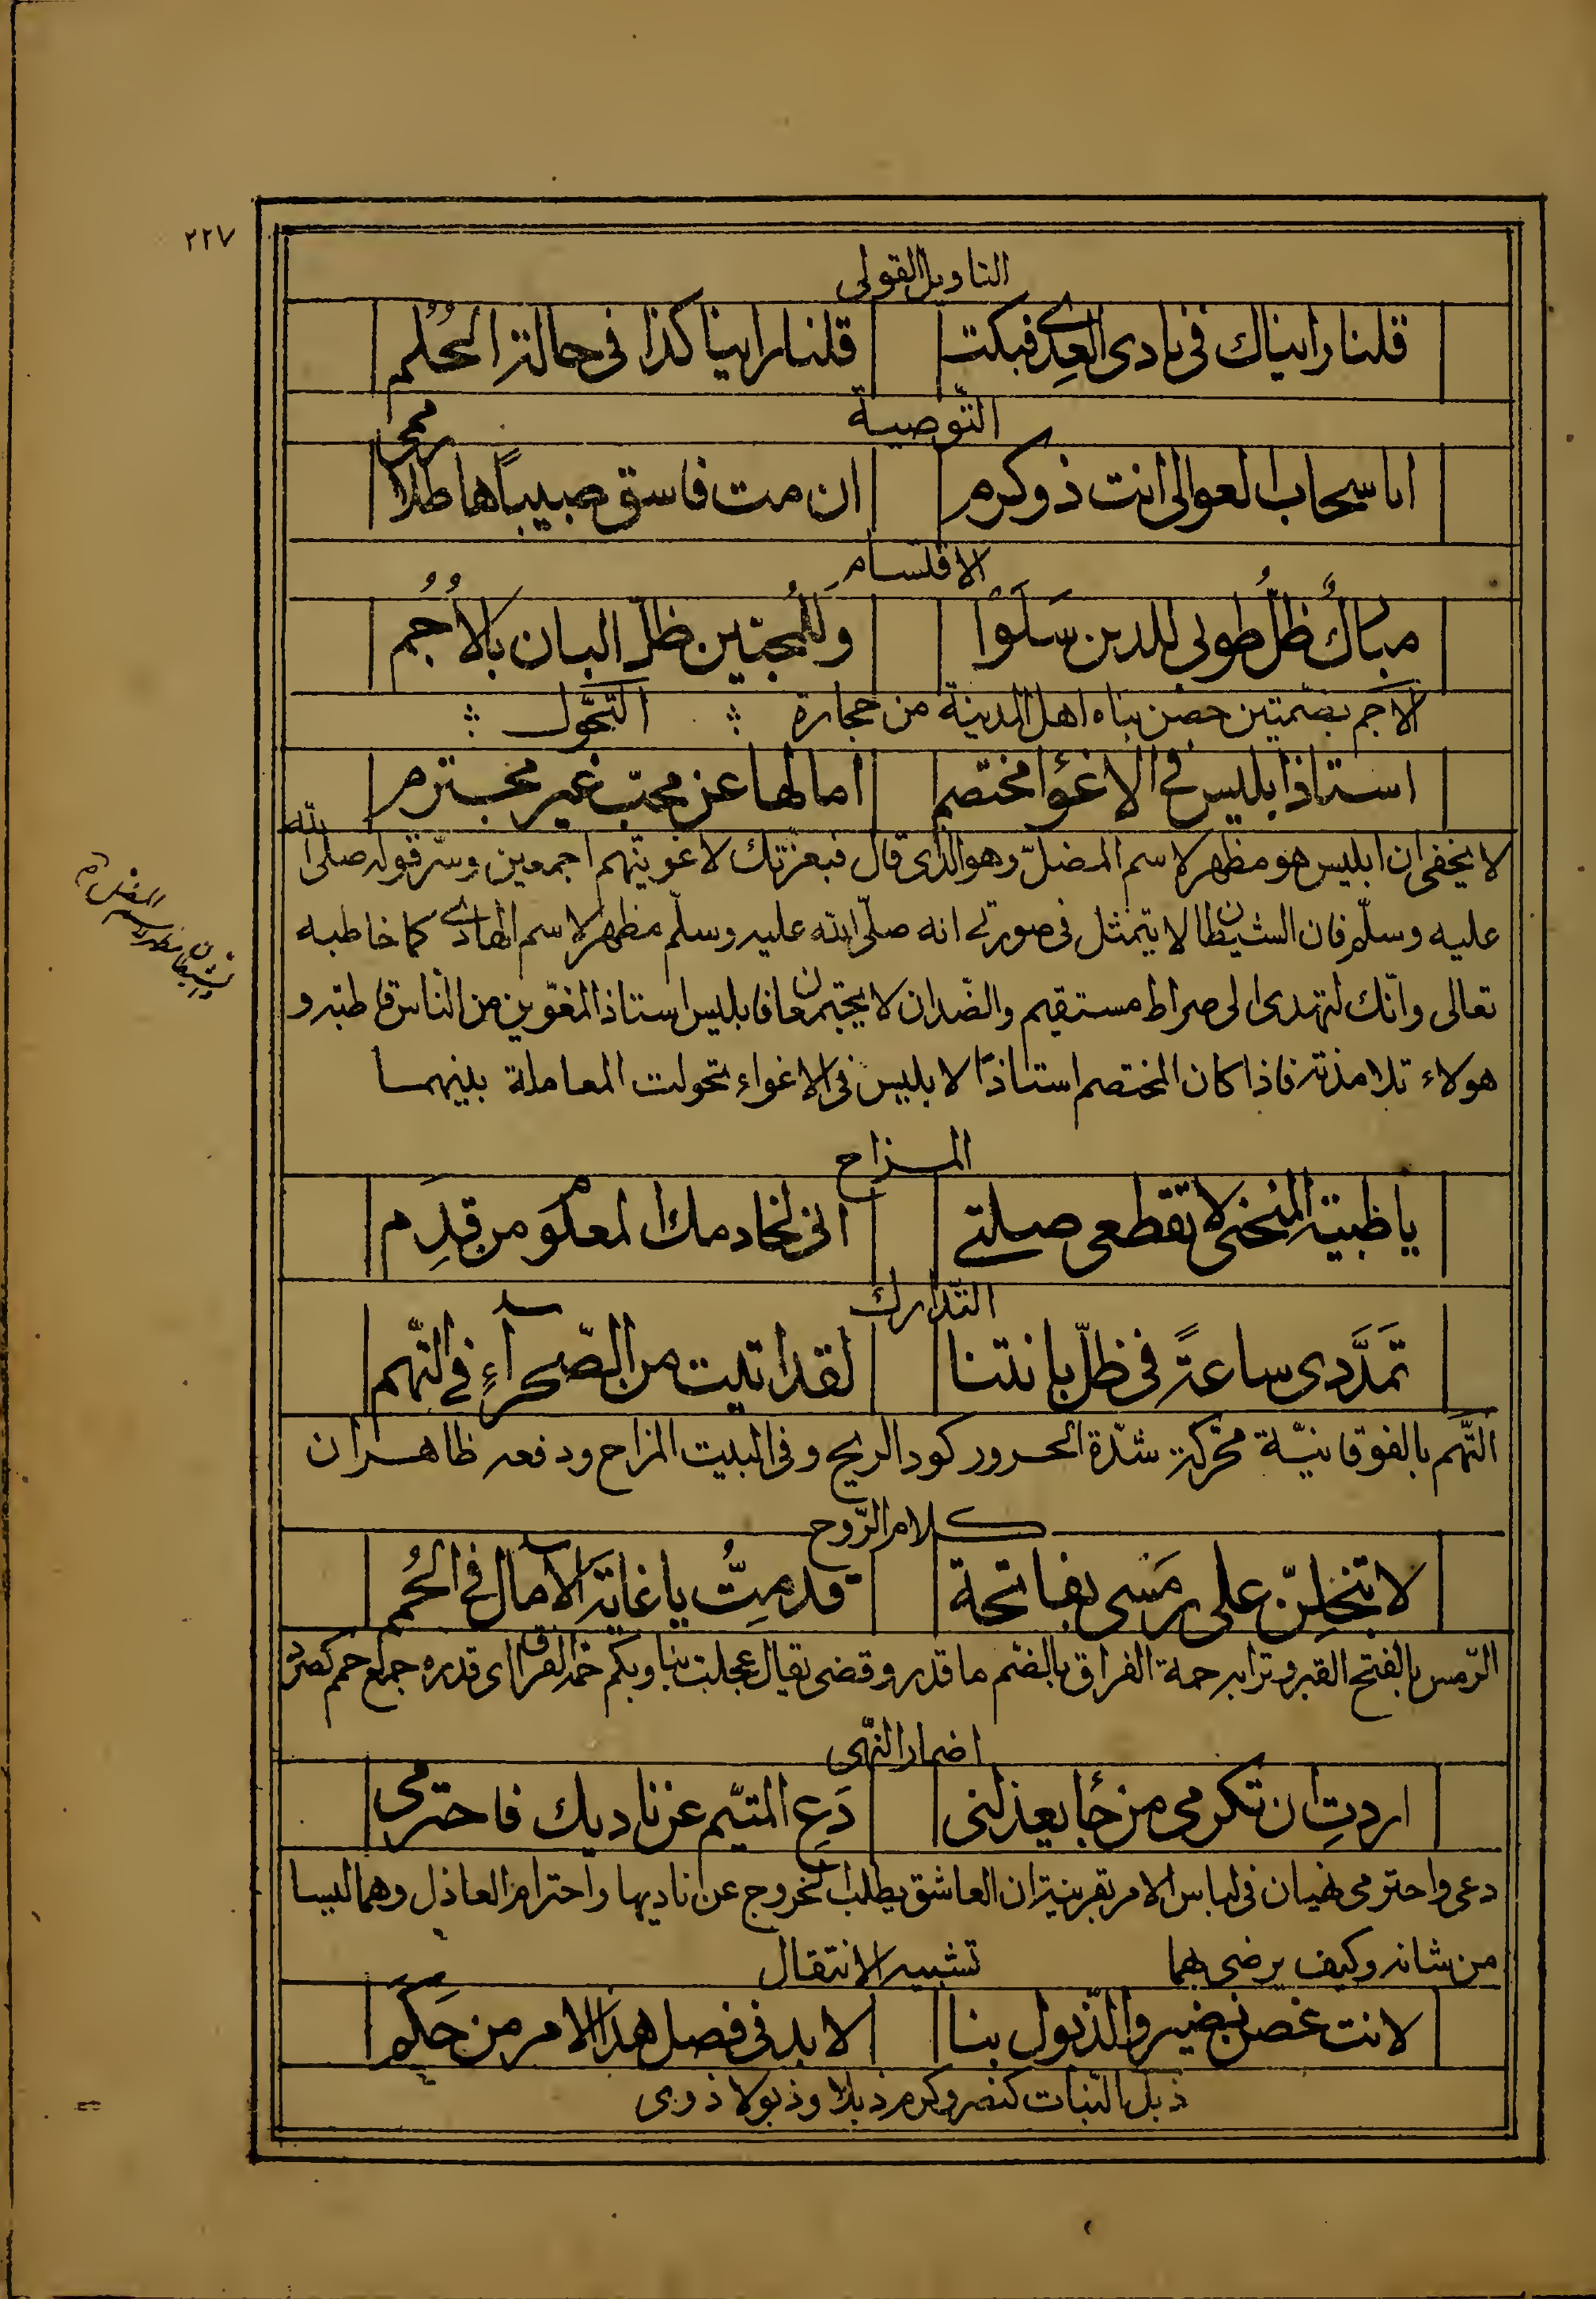 ٢٢٧
التاويل القولى
قلنا رايناك فى نادى العدى فبكت قلنا راينا كذا فى حالة الحُلُم
التّوصية
ايا سحاب العوالى انت ذو كرم ان مت فاسق صبيبًا هاطلا رممى
الاقتسام
مباركٌ ظلُّ طوبى للذين سَلَوْا وَلِلْمُحبّين ظلّ البان بالاُجُم
الاجم بضمتين حصن بناه اهل المدينة من حجارة ؞ التّحوّل ؞
استاذ ابليس فى الاغواء مختصم امالها عن محبّ غير محترم
لا يخفى ان ابليس هو مظهر لاسم المضلّ وهو الذى قال فبعزّتك لاغوينّهم اجمعين وسرّ قوله صلى الله
عليه وسلّم فان الشيطان لا يتمثل فى صورتى انه صلّى الله عليه وسلّم مظهر لاسم الهادى كما خاطبه
تعالى وانّك لتهدى الى صراط مستقيم والضّدان لا يجتمعان فابليس استاذ المغوّين من الناس قاطبة و
هولاء تلامذته فاذا كان المختصم استاذًا لابليس فى الاغواء تحولت المعاملة بينهما
المزاح
يا ظبية المنحنى لا تقطعى صلتى انى لخادمك المعلوم من قِدَم
التّدارك
تَمَدَّدى ساعةً فى ظلّ بانتنا لقد اتيت من الصّحراءِ فى التّهم
التّهم بالفوقانيّة محّركة شدّة الحر وركود الريح وفى البيت المزاح ودفعه ظاهران
كلام الرّوح
لا تبخلِنّ على رَمْسى بفاتحة قد مِتُّ يا غاية الآمال فى الحُمم
الرّمس بالفتح القبر وترابه حمة الفراق بالضّم ما قدر وقضى يقال عجلت بنا وبكم حمّة الفراق اى قدره جمع حمم كصرد
اضمار النّهى
اردتِ ان تكرمى من جأ يعذلنى دَعِ المتيّم عن ناديك فاحترمى
دعى واحترمى نهيان فى لباس الامر بقرينة ان العاشق يطلب الخروج عن ناديها واحترام العاذل وهما ليسا
من شانه وكيف يرضى بهما تشبيه الانتقال
لانت غصن نضير والذّبول بنا لا بد فى فصل هذا الامر من حَكَم
ذبل النّبات كنصر وكرم ذبلا وذبولا ذوى